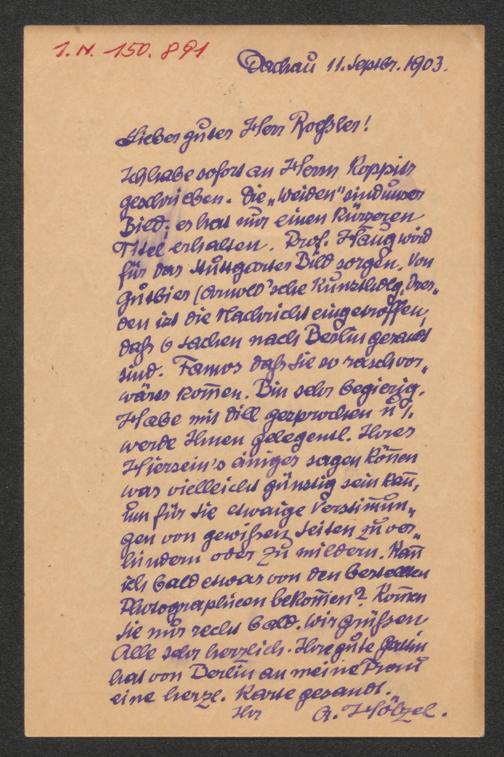 I.N. 150.891
Dachau 11. Septbr. 1903.
Lieber guter Herr Roeßler!
Ich habe sofort an Herrn Koppits
geschrieben. Die „Weiden" sind unser
Bild; es hat nur einen kürzeren
Titel erhalten. Prof. Haug wird
für das Stuttgarter Bild sorgen. Von
Gutbier (Arnold'sche Kunsthdlg. Dres„
den ist die Nachricht eingetroffen,
daß 6 Sachen nach Berlin gesandt
sind. Famos daß Sie so rasch vor„
wärts kom̅en. Bin sehr begierig.
Habe mit Dill gesprochen u.
werde Ihnen gelegentl. Ihres
Hiersein's einiges sagen kön̅en
was vielleicht günstig sein kan̅,
um für Sie etwaige Verstim̅un„
gen von gewißen Seiten zu ver„
hindern oder zu mildern. Kan̅
ich bald etwas von den bestellten
Photographieen bekom̅en? Kom̅en
Sie nur recht bald. Wir grüßen
Alle sehr herzlich. Ihre gute Gattin
hat von Berlin an meine Frau
eine herzl. Karte gesandt.
Ihr A. Hölzel.